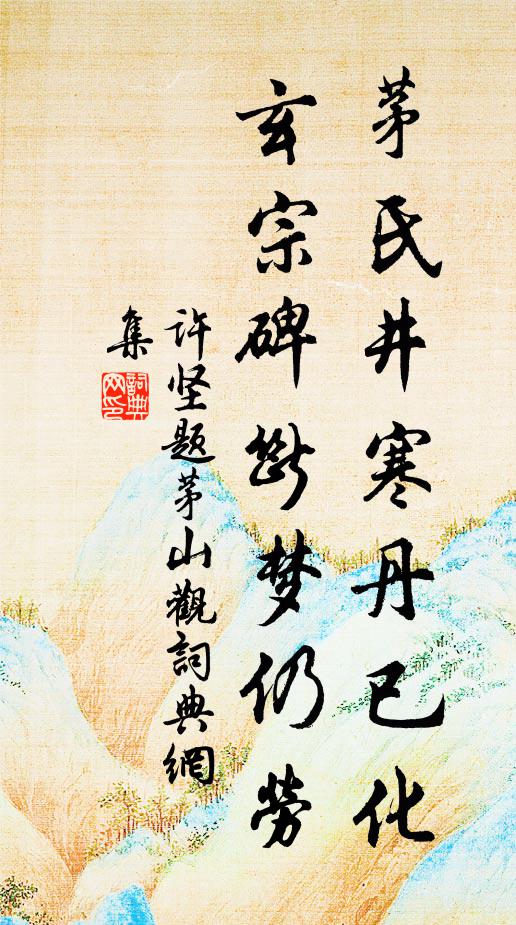 茅氏井寒丹已化
玄宗碑断梦仍劳
许坚题茅山觀詞典網
集
詞典
网印